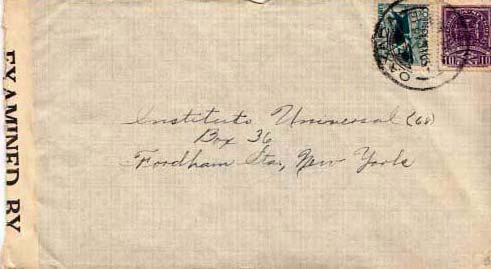 EXAMINED BY
10 10
Instituto Universal (68)
Box 36
Fordham Sta, New York